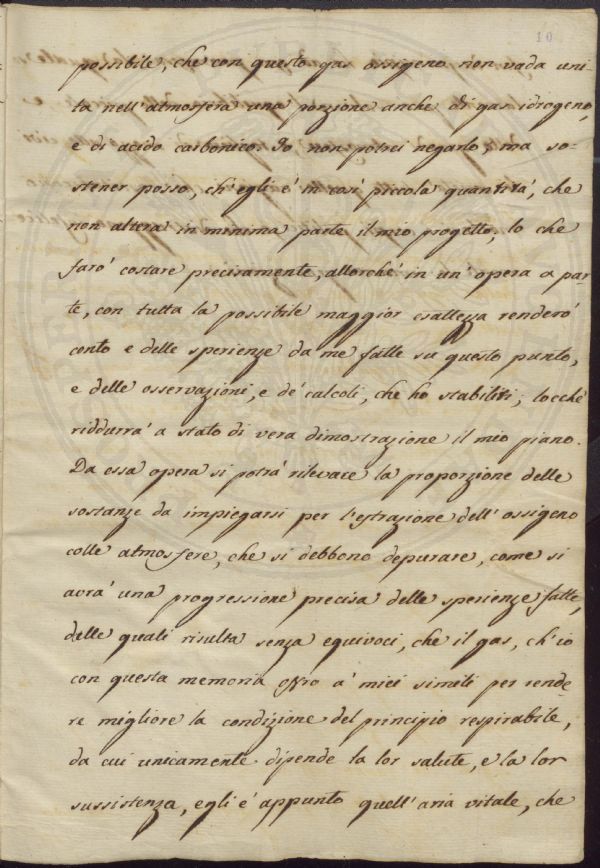 10
possibile, che con questo gas ossigeno non vada uni-
ta nell'atmosfera una porzione anche di gas idrogeno,
e di acido carbonico. Io non potrei negarlo, ma so-
stener posso, ch'egli è in così piccola quantità, che
non altera in minima parte il mio progetto, lo che
farò costare precisamente, allorchè in un'opera a par-
te, con tutta la possibile maggior esattezza renderò
conto e delle sperienze da me fatte su questo punto,
e delle osservazioni, e de' calcoli, che ho stabiliti; locchè
riddurrà a stato di vera dimostrazione il mio piano.
Da essa opera si potrà rilevare la proporzione delle
sostanze da impiegarsi per l'estrazione dell'ossigeno
colle atmosfere, che si debbono depurare, come si
avrà una progressione precisa delle sperienze fatte,
dalle quali risulta senza equivoci, che il gas, ch'io
con questa memoria offro a' miei simili per rende-
re migliore la condizione del principio respirabile,
da cui unicamente dipende la lor salute, e la lor
sussistenza, egli è appunto quell'aria vitale, che